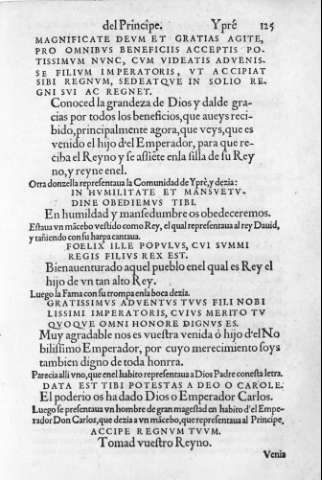 del Principe. Ypré 125
MAGNIFICATE DEVM ET GRATIAS AGITE,
PRO OMNIBVS BENEFICIIS ACCEPTIS PO-
TISSIMVM NVNC, CVM VIDEATIS ADVENIS-
SE FILIVM IMPERATORIS, VT ACCIPIAT
SIBI REGNVM, SEDEATQVE IN SOLIO RE-
GNI SVI AC REGNET.
Conoced la grandeza de Dios y dalde gra-
cias por todos los beneficios, que aueys reci-
bido, principalmente agora, que veys, que es
venido el hijo d'el Emperador, para que re-
ciba el Reyno y se assiẽte enla silla de su Rey
no, y reyne enel.
Otra donzella representaua la Comunidad de Yprè, y dezia:
IN HVMILITATE ET MANSVETV-
DINE OBEDIEMVS TIBI.
En humildad y mansedumbre os obedeceremos.
Estaua vn mãcebo vestido como Rey, el qual representaua al rey Dauid,
y tañiendo con su harpa cantaua.
FOELIX ILLE POPVLVS, CVI SVMMI
REGIS FILIVS REX EST.
Bienauenturado aquel pueblo enel qual es Rey el
hijo de vn tan alto Rey.
Luego la Fama con su trompa enla boca dezia.
GRATISSIMVS ADVENTVS TVVS FILI NOBI
LISSIMI IMPERATORIS, CVIVS MERITO TV
QVOQVE OMNI HONORE DIGNVS ES.
Muy agradable nos es vuestra venida ó hijo d'el No
bilissimo Emperador, por cuyo merecimiento soys
tambien digno de toda honrra.
Parecia alli vno, que enel habito representaua a Dios Padre conesta letra.
DATA EST TIBI POTESTAS A DEO O CAROLE.
El poderio os ha dado Dios o Emperador Carlos.
Luego se presentaua vn hombre de gran magestad en habito d'el Empe-
rador Don Carlos, que dezia a vn mãcebo, que representaua al Principe,
ACCIPE REGNVM TVVM.
Tomad vuestro Reyno.
Venia